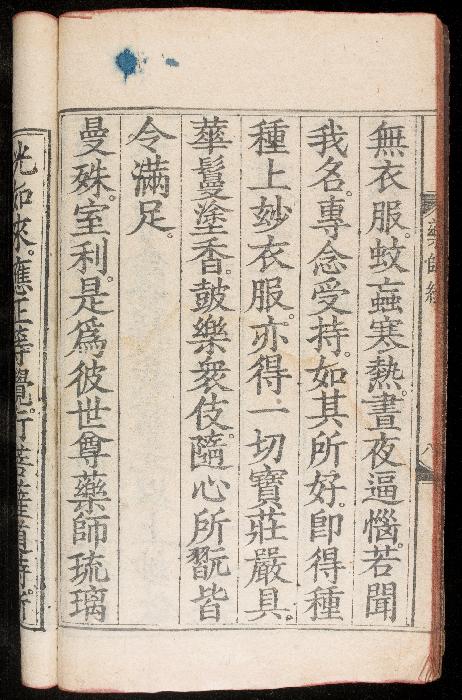 藥師經
八
無衣服。蚊䖟寒熱。晝夜逼惱。若聞
我名。專念受持。如其所好。卽得種
種上妙衣服。亦得一切寶莊嚴具。
華鬘塗香。皷樂衆伎。隨心所翫皆
令滿足。
曼殊室利。是爲彼世尊藥師琉璃
光如來。應正等覺。行菩薩道時。所